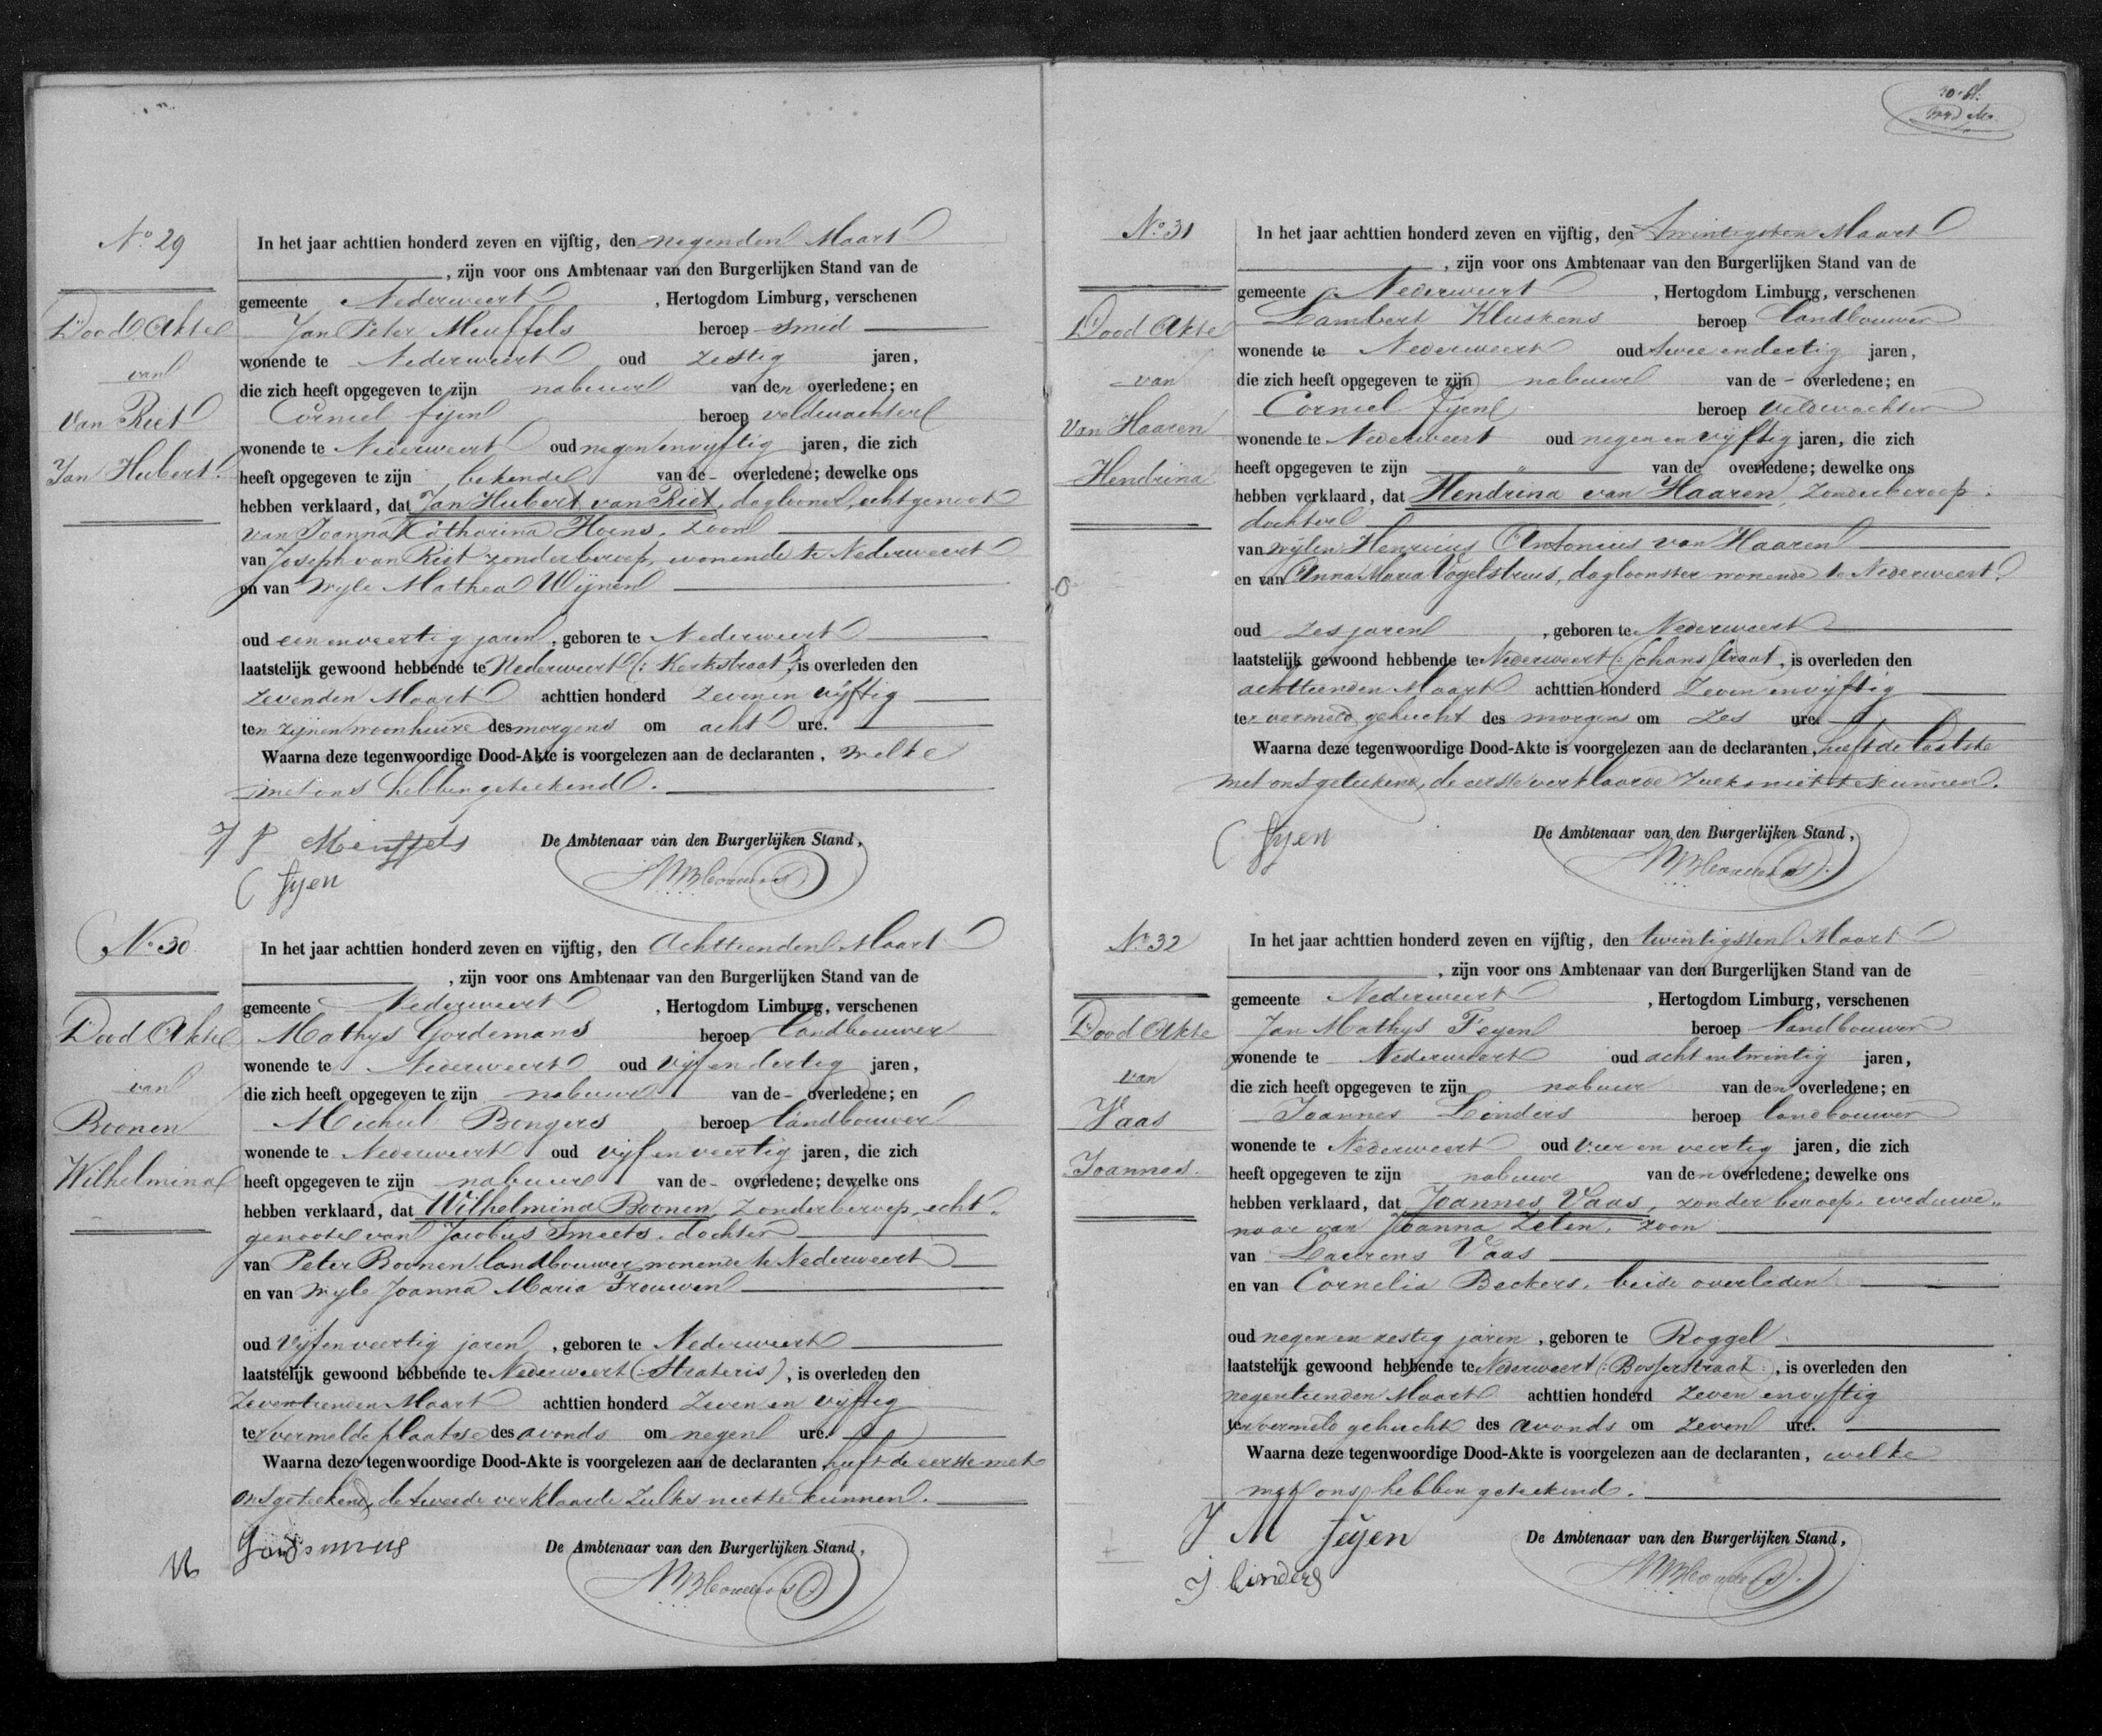 No 29
Dood Akte
van
van Riet
Jan Hubert.
In het jaar achttien honderd zeven en vijftig, den negenden Maart
, zijn voor ons Ambtenaar van den Burgerlijken Stand van de
gemeente Nederweert , Hertogdom Limburg, verschenen
Jan Peter Meuffels beroep smid
wonende te Nederweert oud zestig jaren,
die zich heeft opgegeven te zijn nabuur van den overledene; en
Corneel Fyen beroep veldwachter
wonende te Nederweert oud negen en vyftig jaren, die zich
heeft opgegeven te zijn bekende van de - overledene; dewelke ons
hebben verklaard, dat Jan Hubert van Riet, daglooner, echtgenoot
van Joanna Catharina Hoens, zoon
van Joseph van Riet zonder beroep, wonende te Nederweert
en van wyle Mathea Wijnen
oud een en veertig jaren, geboren te Nederweert
laatstelijk gewoond hebbende te Nederweert (: Kerkstraat), is overleden den
zevenden Maart achttien honderd zeven en vijftig
ten zijnen woonhuize des morgens om acht ure.
Waarna deze tegenwoordige Dood-Akte is voorgelezen aan de declaranten, welke
met ons hebben geteekend.
J P Meuffels De Ambtenaar van den Burgerlijken Stand,
C fyen
No 30
Dood Akte
van
Boonen
Wilhelmina
In het jaar achttien honderd zeven en vijftig, den Achttienden Maart
, zijn voor ons Ambtenaar van den Burgerlijken Stand van de
gemeente Nederweert , Hertogdom Limburg, verschenen
Mathys Gordemans beroep landbouwer
wonende te Nederweert oud vijf en dertig jaren,
die zich heeft opgegeven te zijn nabuur van de - overledene; en
Michel Bongers beroep landbouwer
wonende te Nederweert oud vijf en veertig jaren, die zich
heeft opgegeven te zijn nabuur van de - overledene; dewelke ons
hebben verklaard, dat Wilhelmina Boonen, zonder beroep, echt-
genoote van Jacobus Smeets, dochter
van Peter Boonen landbouwer, wonende te Nederweert
en van wyle Joanna Maria Frouwen
oud vijf en veertig jaren, geboren te Nederweert
laatstelijk gewoond hebbende te Nederweert (Strateris), is overleden den
Zeventienden Maart achttien honderd Zeven en vijftig
ter vermelde plaatse des avonds om negen ure.
Waarna deze tegenwoordige Dood-Akte is voorgelezen aan de declaranten, heeft de eerste met
ons geteekend, de tweede verklaarde zulks niet te kunnen.
De Ambtenaar van den Burgerlijken Stand,
No 31
Dood Akte
van
Van Haaren
Hendrina
In het jaar achttien honderd zeven en vijftig, den twintigsten Maart
, zijn voor ons Ambtenaar van den Burgerlijken Stand van de
gemeente Nederweert , Hertogdom Limburg, verschenen
Lambert Kluskens beroep landbouwer
wonende te Nederweert oud twee en dertig jaren,
die zich heeft opgegeven te zijn nabuur van de - overledene; en
Corneel Fyen beroep veldwachter
wonende te Nederweert oud negen en vijftig jaren, die zich
heeft opgegeven te zijn " van de overledene; dewelke ons
hebben verklaard, dat Hendrina van Haaren, zonder beroep,
dochter
van wijlen Henricus Antonius van Haaren
en van Anna Maria Vogelstruis, dagloonster wonende te Nederweert.
oud zes jaren, geboren te Nederweert
laatstelijk gewoond hebbende te Nederweert (: Schans straat, is overleden den
achttienden Maart achttien honderd Zeven en vijftig
ter vermeld gehucht des morgens om zes ure.
Waarna deze tegenwoordige Dood-Akte is voorgelezen aan de declaranten, heeft de laatste
met ons geteekend, de eerste verklaarde zulks niet te kunnen.
C fyen De Ambtenaar van den Burgerlijken Stand,
No 32
Dood Akte
van
Vaas
Joannes.
In het jaar achttien honderd zeven en vijftig, den twintigsten Maart
, zijn voor ons Ambtenaar van den Burgerlijken Stand van de
gemeente Nederweert , Hertogdom Limburg, verschenen
Jan Mathys Feyen beroep landbouwer
wonende te Nederweert oud acht en twintig jaren,
die zich heeft opgegeven te zijn nabuur van den overledene; en
Joannes Linders beroep landbouwer
wonende te Nederweert oud vier en veertig jaren, die zich
heeft opgegeven te zijn nabuur van den overledene; dewelke ons
hebben verklaard, dat Joannes Vaas, zonder beroep, weduwe-
naar van Joanna Zelen, zoon
van Laurens Vaas
en van Cornelia Beckers, beide overleden
oud negen en zestig jaren, geboren te Roggel
laatstelijk gewoond hebbende te Nederweert (: Bosserstraat :, is overleden den
negentienden Maart achttien honderd zeven en vyftig
ter vermeld gehucht des avonds om zeven ure.
Waarna deze tegenwoordige Dood-Akte is voorgelezen aan de declaranten, welke
met ons hebben geteekend.
J M feijen De Ambtenaar van den Burgerlijken Stand,
J. linders